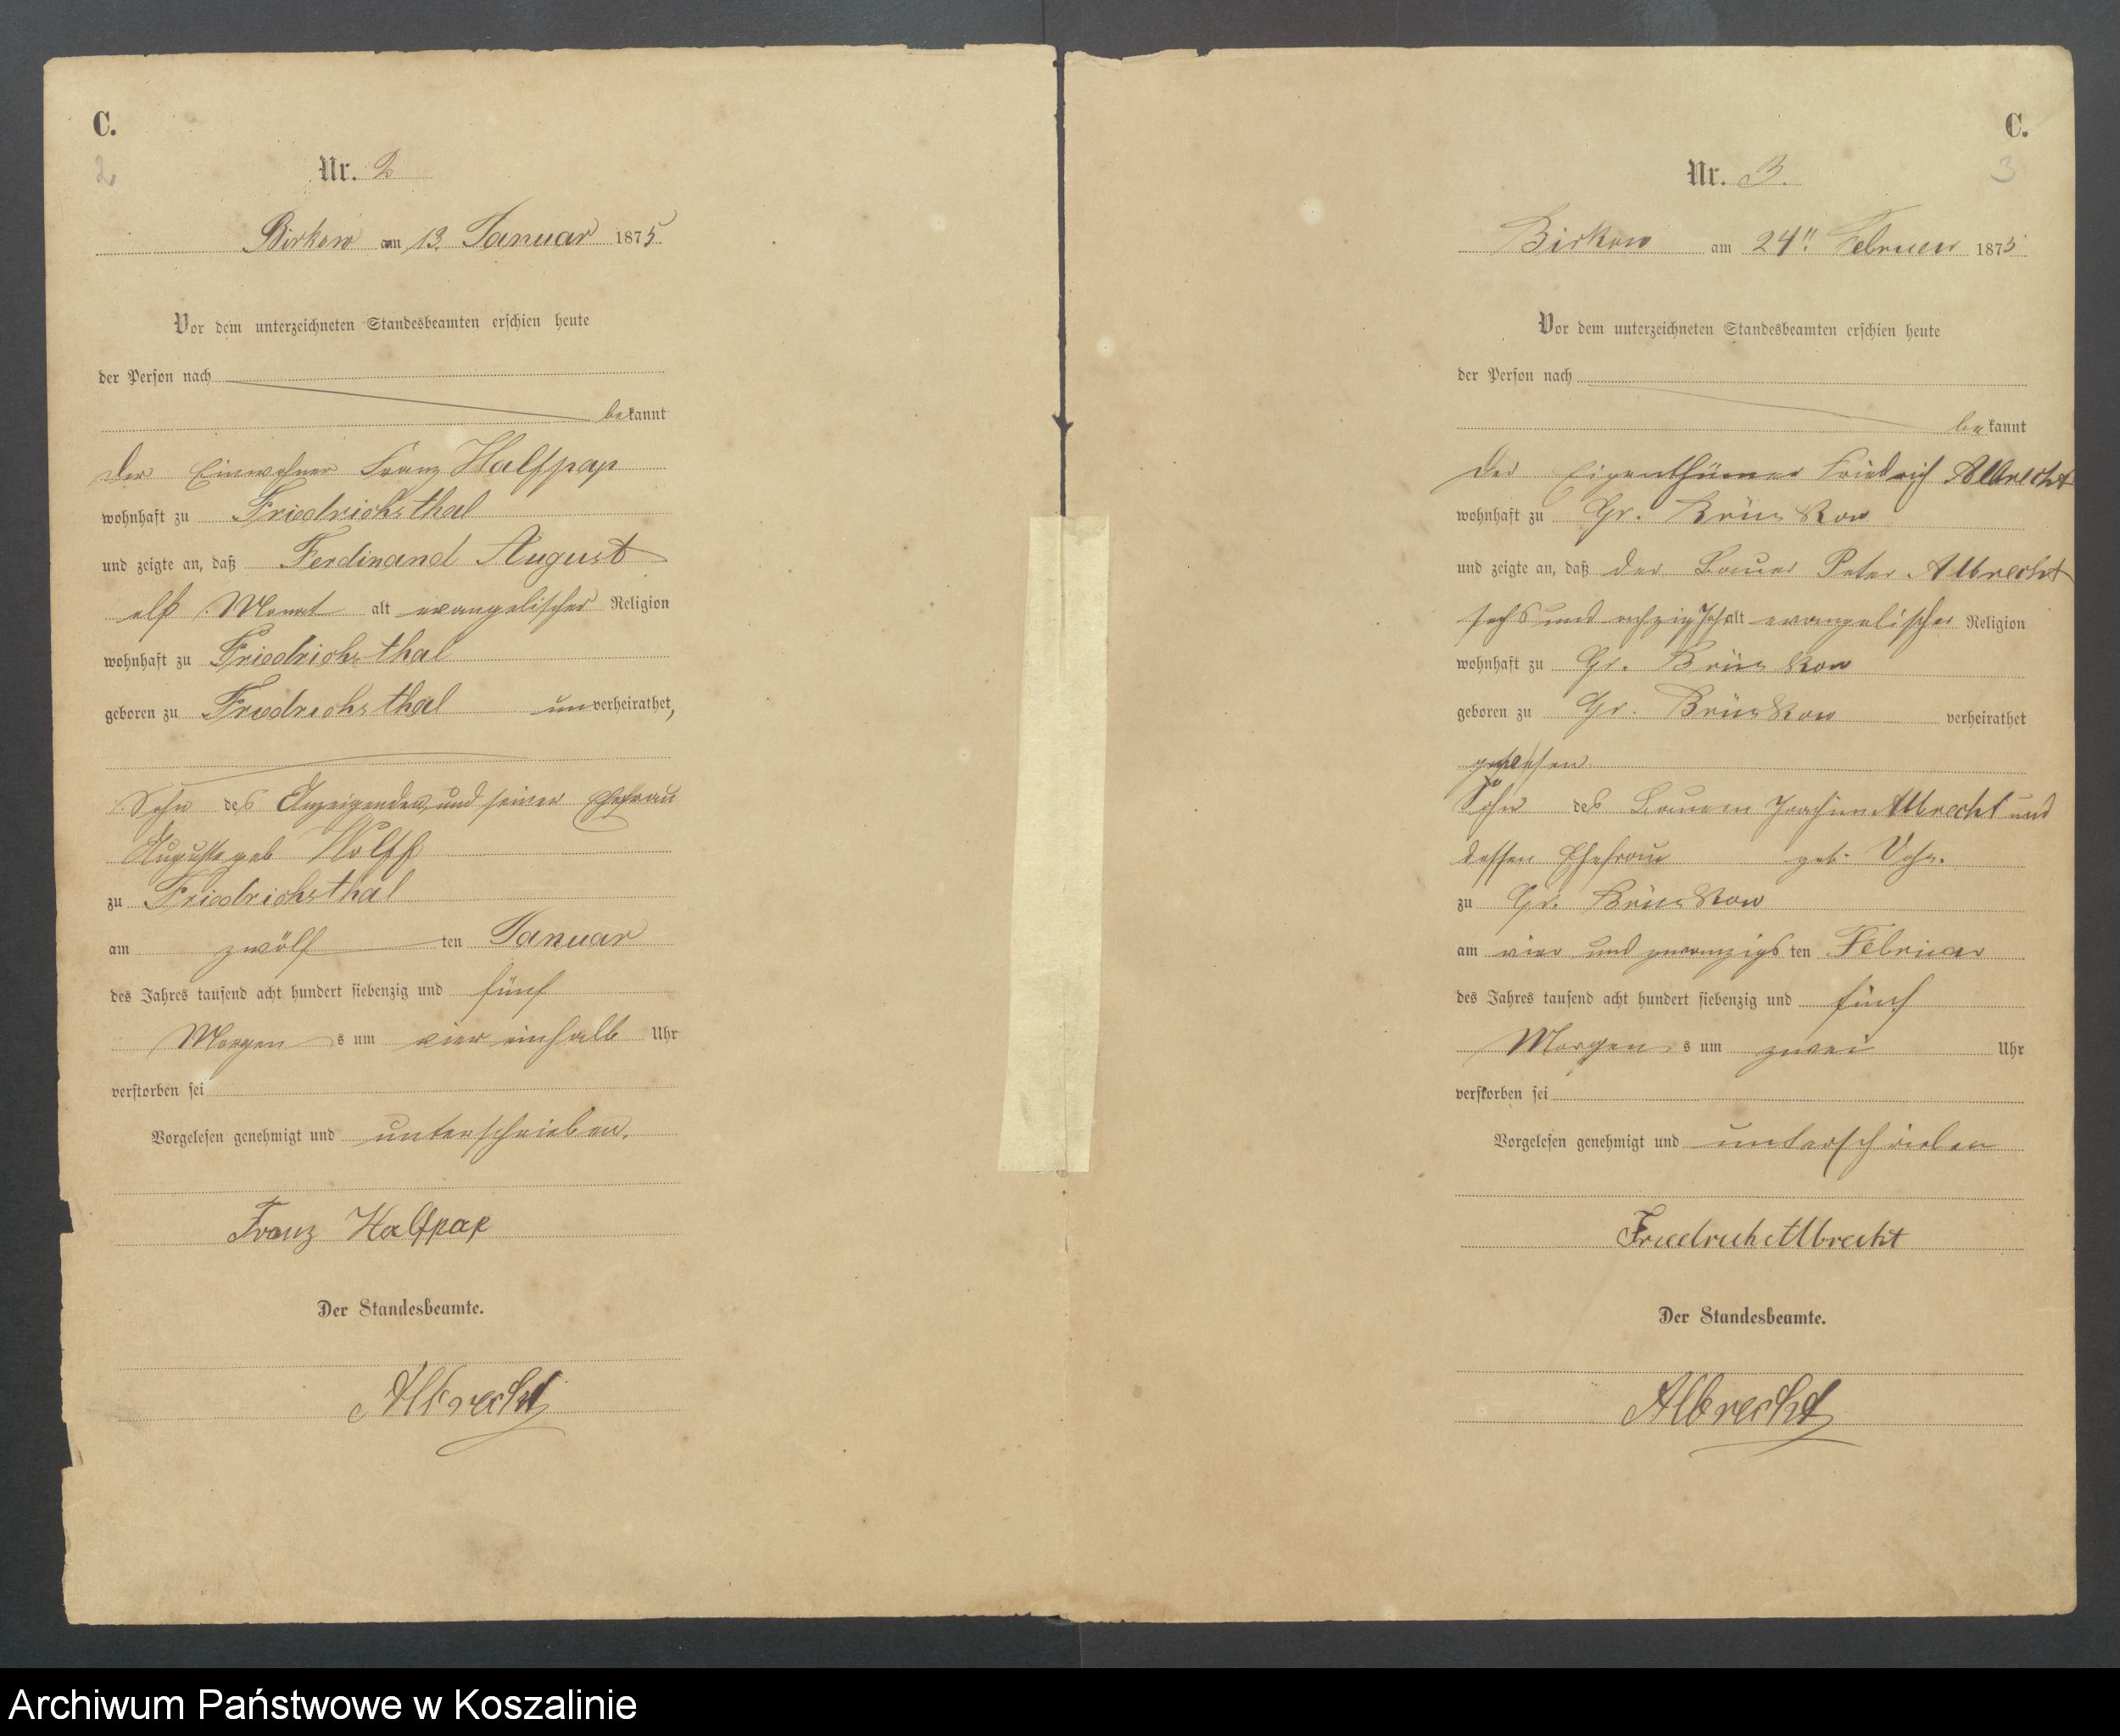 C.
2
Nr. 2
Birkow am 13. Januar 1875
Vor dem unterzeichneten Standesbeamten erschien heute
der Person nach
bekannt
der Einwohner Franz Halfpap
wohnhaft zu Friedrichsthal
und zeigte an, daß Ferdinand August
elf Monat alt evangelischer Religion
wohnhaft zu Friedrichsthal
geboren zu Friedrichsthal unverheirathet,
Sohn des Anzeigenden und seiner Ehefrau
Auguste geb Wolff
zu Friedrichsthal
am zwölften Januar
des Jahres tausend acht hundert siebenzig und fünf
Morgens um vier einhalb Uhr
verstorben sei
Vorgelesen genehmigt und unterschrieben.
Franz Halfpap
Der Standesbeamte.
Albrecht
C.
3
Nr. 3.
Birkow am 24ten Februar 1875
Vor dem unterzeichneten Standesbeamten erschien heute
der Person nach
bekannt
der Eigenthümer Friedrich Albrecht
wohnhaft zu Gr. Brüskow
und zeigte an, daß der Bauer Peter Albrecht
sechs und achzig Jahr alt evangelischer Religion
wohnhaft zu Gr. Brüskow
geboren zu Gr. Brüskow verheirathet
gewesen
Sohn des Bauern Joachim Albrecht und
dessen Ehefrau geb.
zu Gr. Brüskow
am vier und zwanzigsten Februar
des Jahres tausend acht hundert siebenzig und fünf
Morgens um zwei Uhr
verstorben sei
Vorgelesen genehmigt und unterschrieben
Friedrich Albrecht
Der Standesbeamte.
Albrecht
Archiwum Państwowe w Koszalinie